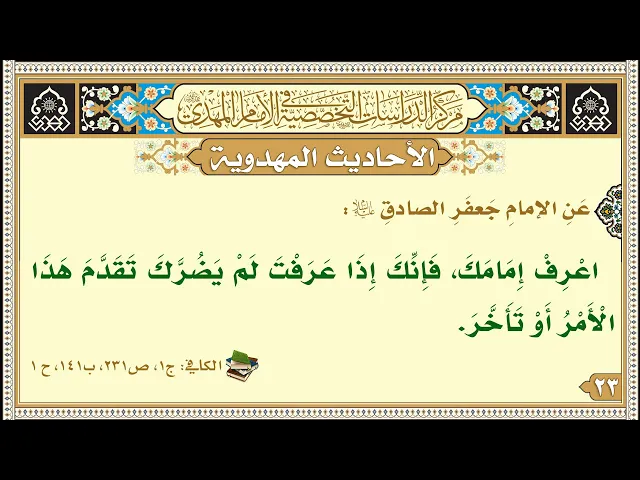 مركز الدراسات التخصصية في الإمام المهدي
الأحاديث المهدوية
عَنِ الإمامِ جَعفَرِ الصادقِ :
اعْرِفْ إِمَامَكَ، فَإِنَّكَ إِذَا عَرَفْتَ لَمْ يَضُرَّكَ تَقَدَّمَ هَذَا
الْأَمْرُ أَوْ تَأَخَّرَ.
الكافي: ج١، ص٢٣١، ب١٤١، ح ١
٢٣